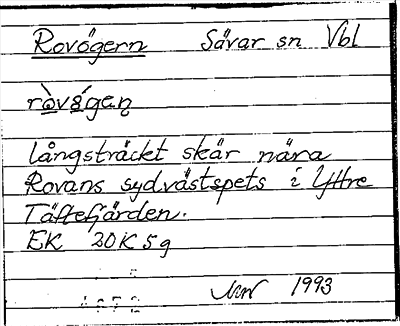 Rovögern Sävar sn Vbl
långsträckt skär nära
Rovans sydvästspets i Yttre
Täftefjärden.
EK 20K 5g
1993